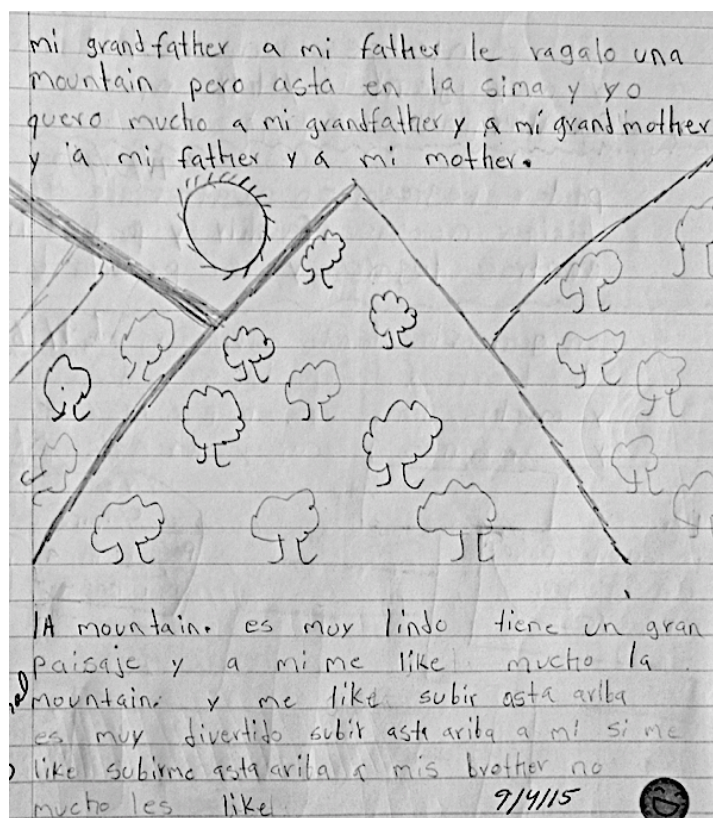 mi grandfather a mi father le ragalo una
mountain pero asta en la sima y yo
quero mucho a mi grandfather y a mi grandmother
y a mi father y a mi mother.
lA mountain. es muy lindo tiene un gran
paisaje y a mi me like mucho la
mountain. y me like subir asta ariba
es muy divertido subir asta ariba a mi si me
like subirme asta ariba a mis brother no
mucho les like
9/4/15